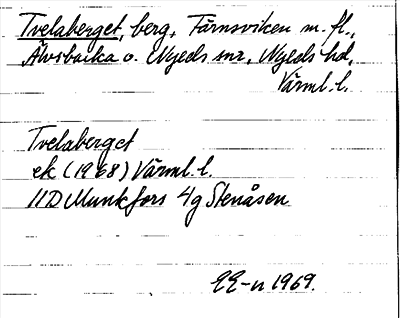 Tvelaberget, berg, Tärnsviken m. fl.,
Älvsbacka o. Nyeds snr, Nyeds hd,
Värml. l.
Tvelaberget
ek (1968) Värml. l.
11D Munkfors 4g Stenåsen
EE-n 1969.